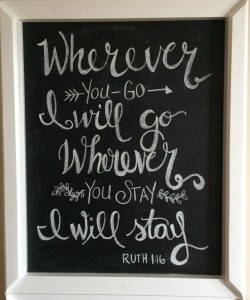 Wherever
You-Go
I will go
Wherever
You Stay
I will stay
Ruth 1:16